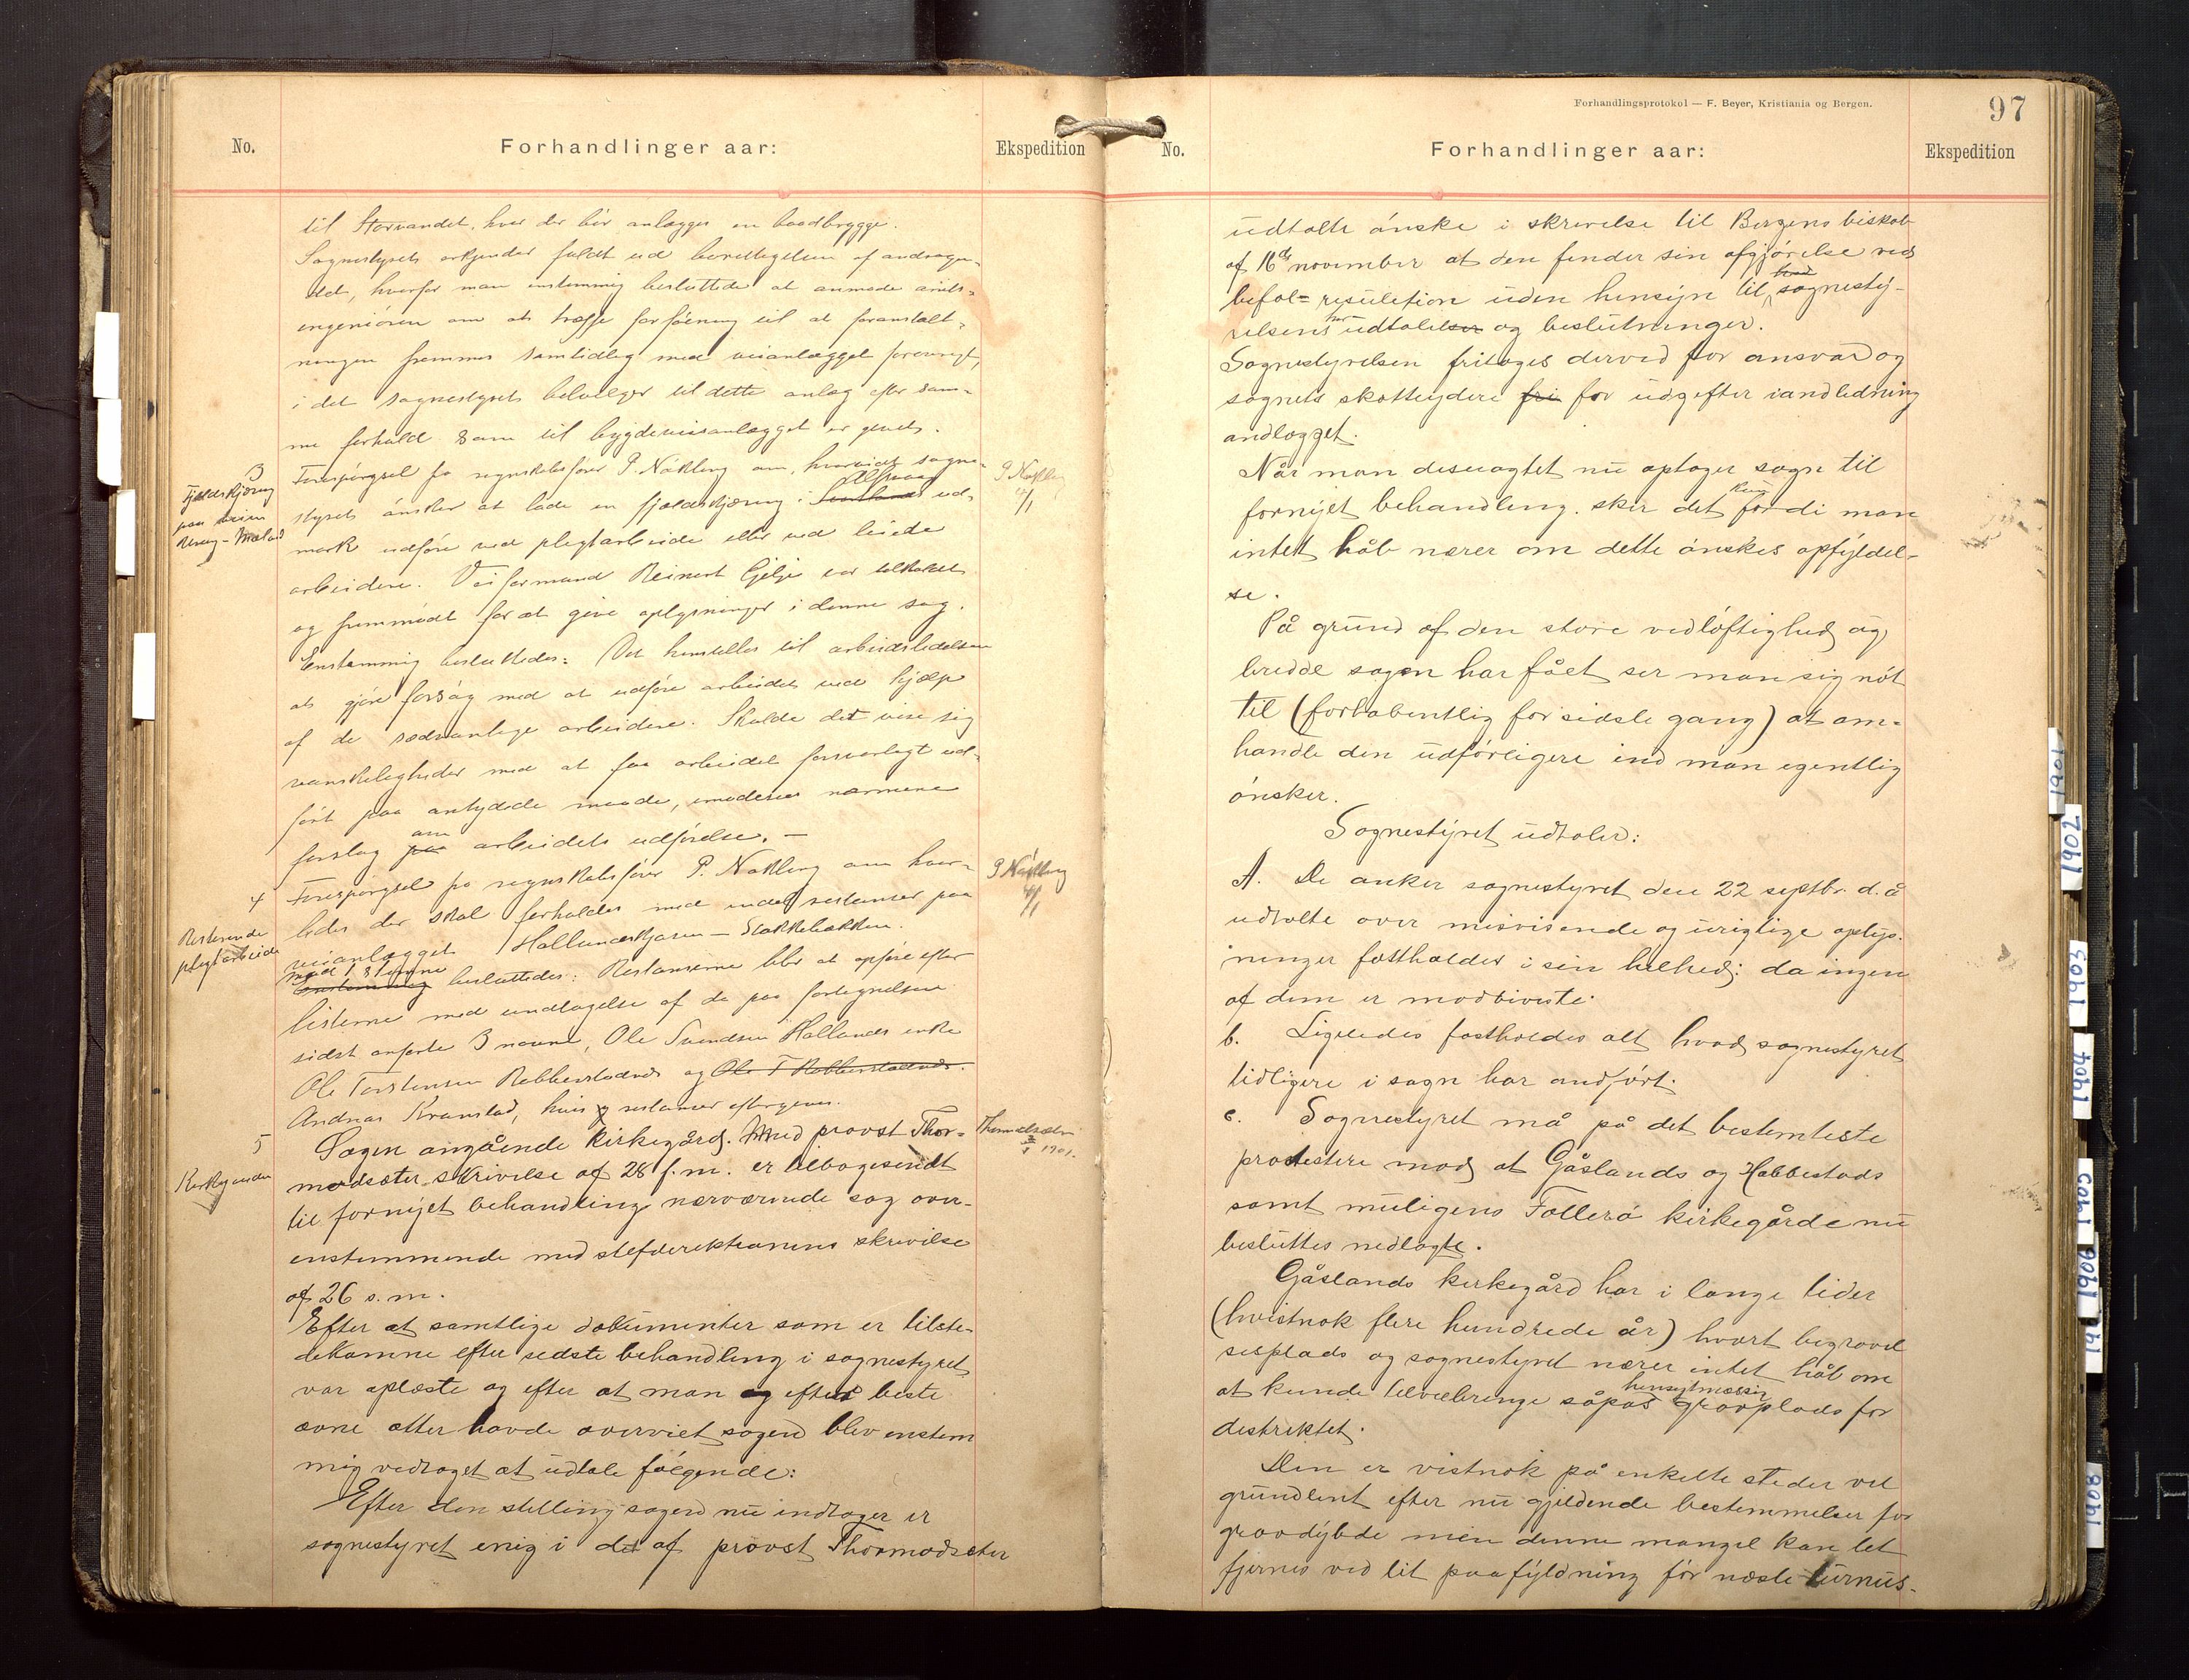 No.
Forhandlinger aar:
Ekspedition
til Storvandet, hvor der bør anlægges en baadbrygge.
Sognestyret erkjender fuldt ud berettigelsen af andragen-
det, hvorfor man enstemmig besluttede at anmode amts-
ingeniøren om at træffe forføining til at foranstalt-
ningen fremmes samtidig med veianlægget forøvrigt,
i det sognestyret bevilger til dette anlæg efter sam-
me forhold som til bygdeveianlægget er gjort.
3
Fjeldskjæring
paa veien
Forespørgsel fra regnskabsfører P. Nøkling om, hvorvidt sogne-
styret ønsker at lade en fjeldskjæring i ud-
mark udføre ved pligtarbeide eller ved leiede
arbeidere. Veiformand Reinert Gjelje var tilkaldt
og fremmødt for at give oplysninger i denne sag.
Enstemmig besluttedes: Det henstilles til arbeidsledelsen
at gjøre forsøg med at udføre arbeidet ved hjælp
af de sædvanlige arbeidere. Skulde det vise sig
vanskeligheder med at faa arbeidet forsvarligt ud-
ført paa antydede maade, imødesees nærmere
forslag paa om arbeidets udførelse. —
P Nøkling
4/1
4
Resterende
pligtarbeide
Forespørgsel fra regnskabsfører P. Nøkling om hvor-
ledes der skal forholdes med endel restanser paa
veianlægget Hallumskjøren - Stokkebækken.
Enstemmig mod 1 stemme besluttedes: Restanserne blir at opføre efter
listerne med undtagelse af de paa fortegnelsen
sidst anførte 3 navne, Ole Svendsen Hallands enke
Ole Torstensen Rebbersladnæs og Ole T Rebbersladnæs.
Andreas Kvanstad, hvis restanser eftergives.
P Nøkling
4/1
5
Kirkegaarden
Sagen angående kirkegård. Med provst Thor-
modsæter skrivelse af 28 f.m. er tilbagesendt
til fornyet behandling nærværende sag over-
enstemmende med stiftdirektionens skrivelse
af 26 s.m.
Efter at samtlige dokumenter som er tilste-
dekomne efter sidste behandling i sognestyret
var oplæste og efter at man og efter beste
ævne atter havde overveiet sagen blev enstem
mig vedtaget at udtale følgende:
Efter den stilling sagen nu indtager er
sognestyret enig i det af provst Thormodsæter
1901.
Forhandlingsprotokol — F. Beyer, Kristiania og Bergen.
97
No.
Forhandlinger aar:
Ekspedition
udtalte ønske i skrivelse til Bergens biskob
af 16de november at den finder sin afgjørelse ved
befal= resulution uden hensyn til sognesty-
relsens udtalelser og beslutninger.
Sognestyrelsen fritages derved for ansvar og
sognets skatteydere fri for udgifter i andledning
andlægget.
Når man desuagtet nu optager sagn til
fornyet behandling. sker det kun fordi man
intet håb nærer om dette ønskes opfyldel-
se.
På grund af den store vedløftighed og
bredde sagen har fået ser man sig nøt
til (forhåbentlig for sidste gang) at om-
handle den udførligere ind man egentlig
ønsker.
Sognestyret udtaler:
A. De anker sognestyret den 22 septbr. d. å
udtalte over misvisende og urigtige oplys-
ninger fastholdes i sin helhed; da ingen
af dem er modbeviste.
b. Ligeledes fastholdes alt hvad sognestyret
tidligere i sagn har andført.
c. Sognestyret må på det bestemteste
protestere mod at Gåslands og Habbestads
samt muligens Tollerø kirkegårde nu
besluttes nedlagte.
Gåslands kirkegård har i lange tider
(hvistnok flere hundrede år) hvært begravel
sesplads og sognestyret nærer intet håb om
at kunde tilveiebringe såpas hensigtmæssig gravplads for
destriktet.
Den er vistnok på enkelte steder vel
grundlent efter nu gjeldende bestemmelser for
gravdybde men denne mangel kan let
fjernes ved lit paafyldning før næste turnus-
1901
1902
1903
1904
1905
1906
1908